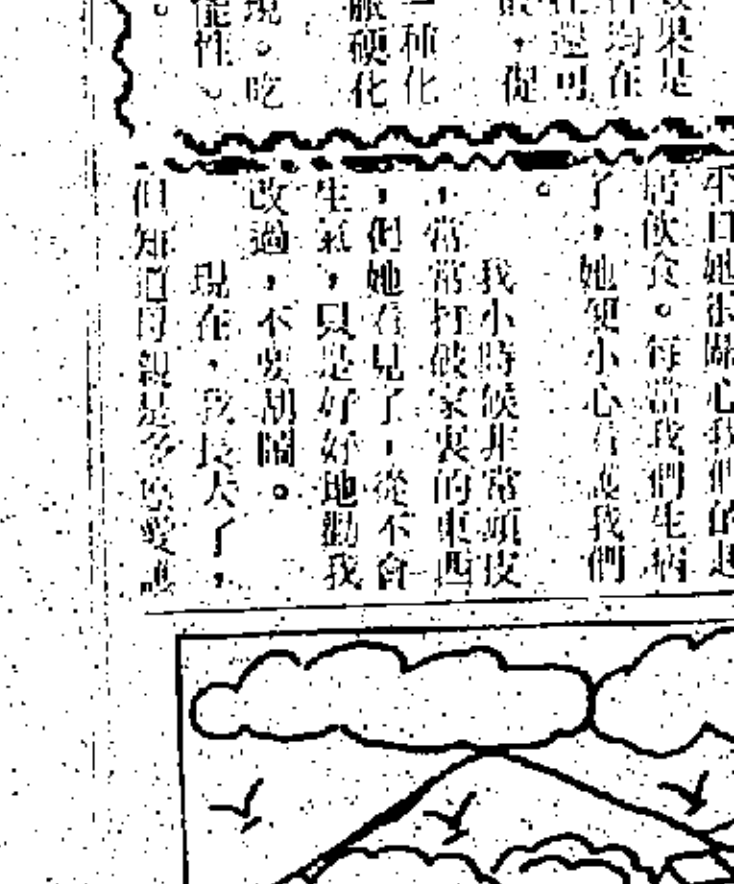 效果是
均在
往還可
，促
一種化
硬化
現。吃
能性。
。
平日她很關心我們的起
居飲食。每當我們生病
了，她便小心看護我們
。
我小時候非常頑皮
，常常打破家裏的東西
，但她看見了，從不會
生氣，只是好好地勸我
改過，不要胡鬧。
現在，我長大了，
但知道母親是多麼愛護